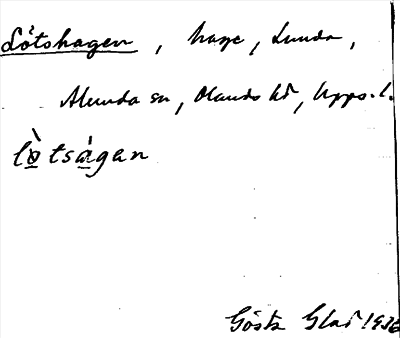 Lötshagen, hage, Lunda,
Alunda sn, Olands hd, Upps. l.
lò̲tsá̲gan
Gösta Glad 1936